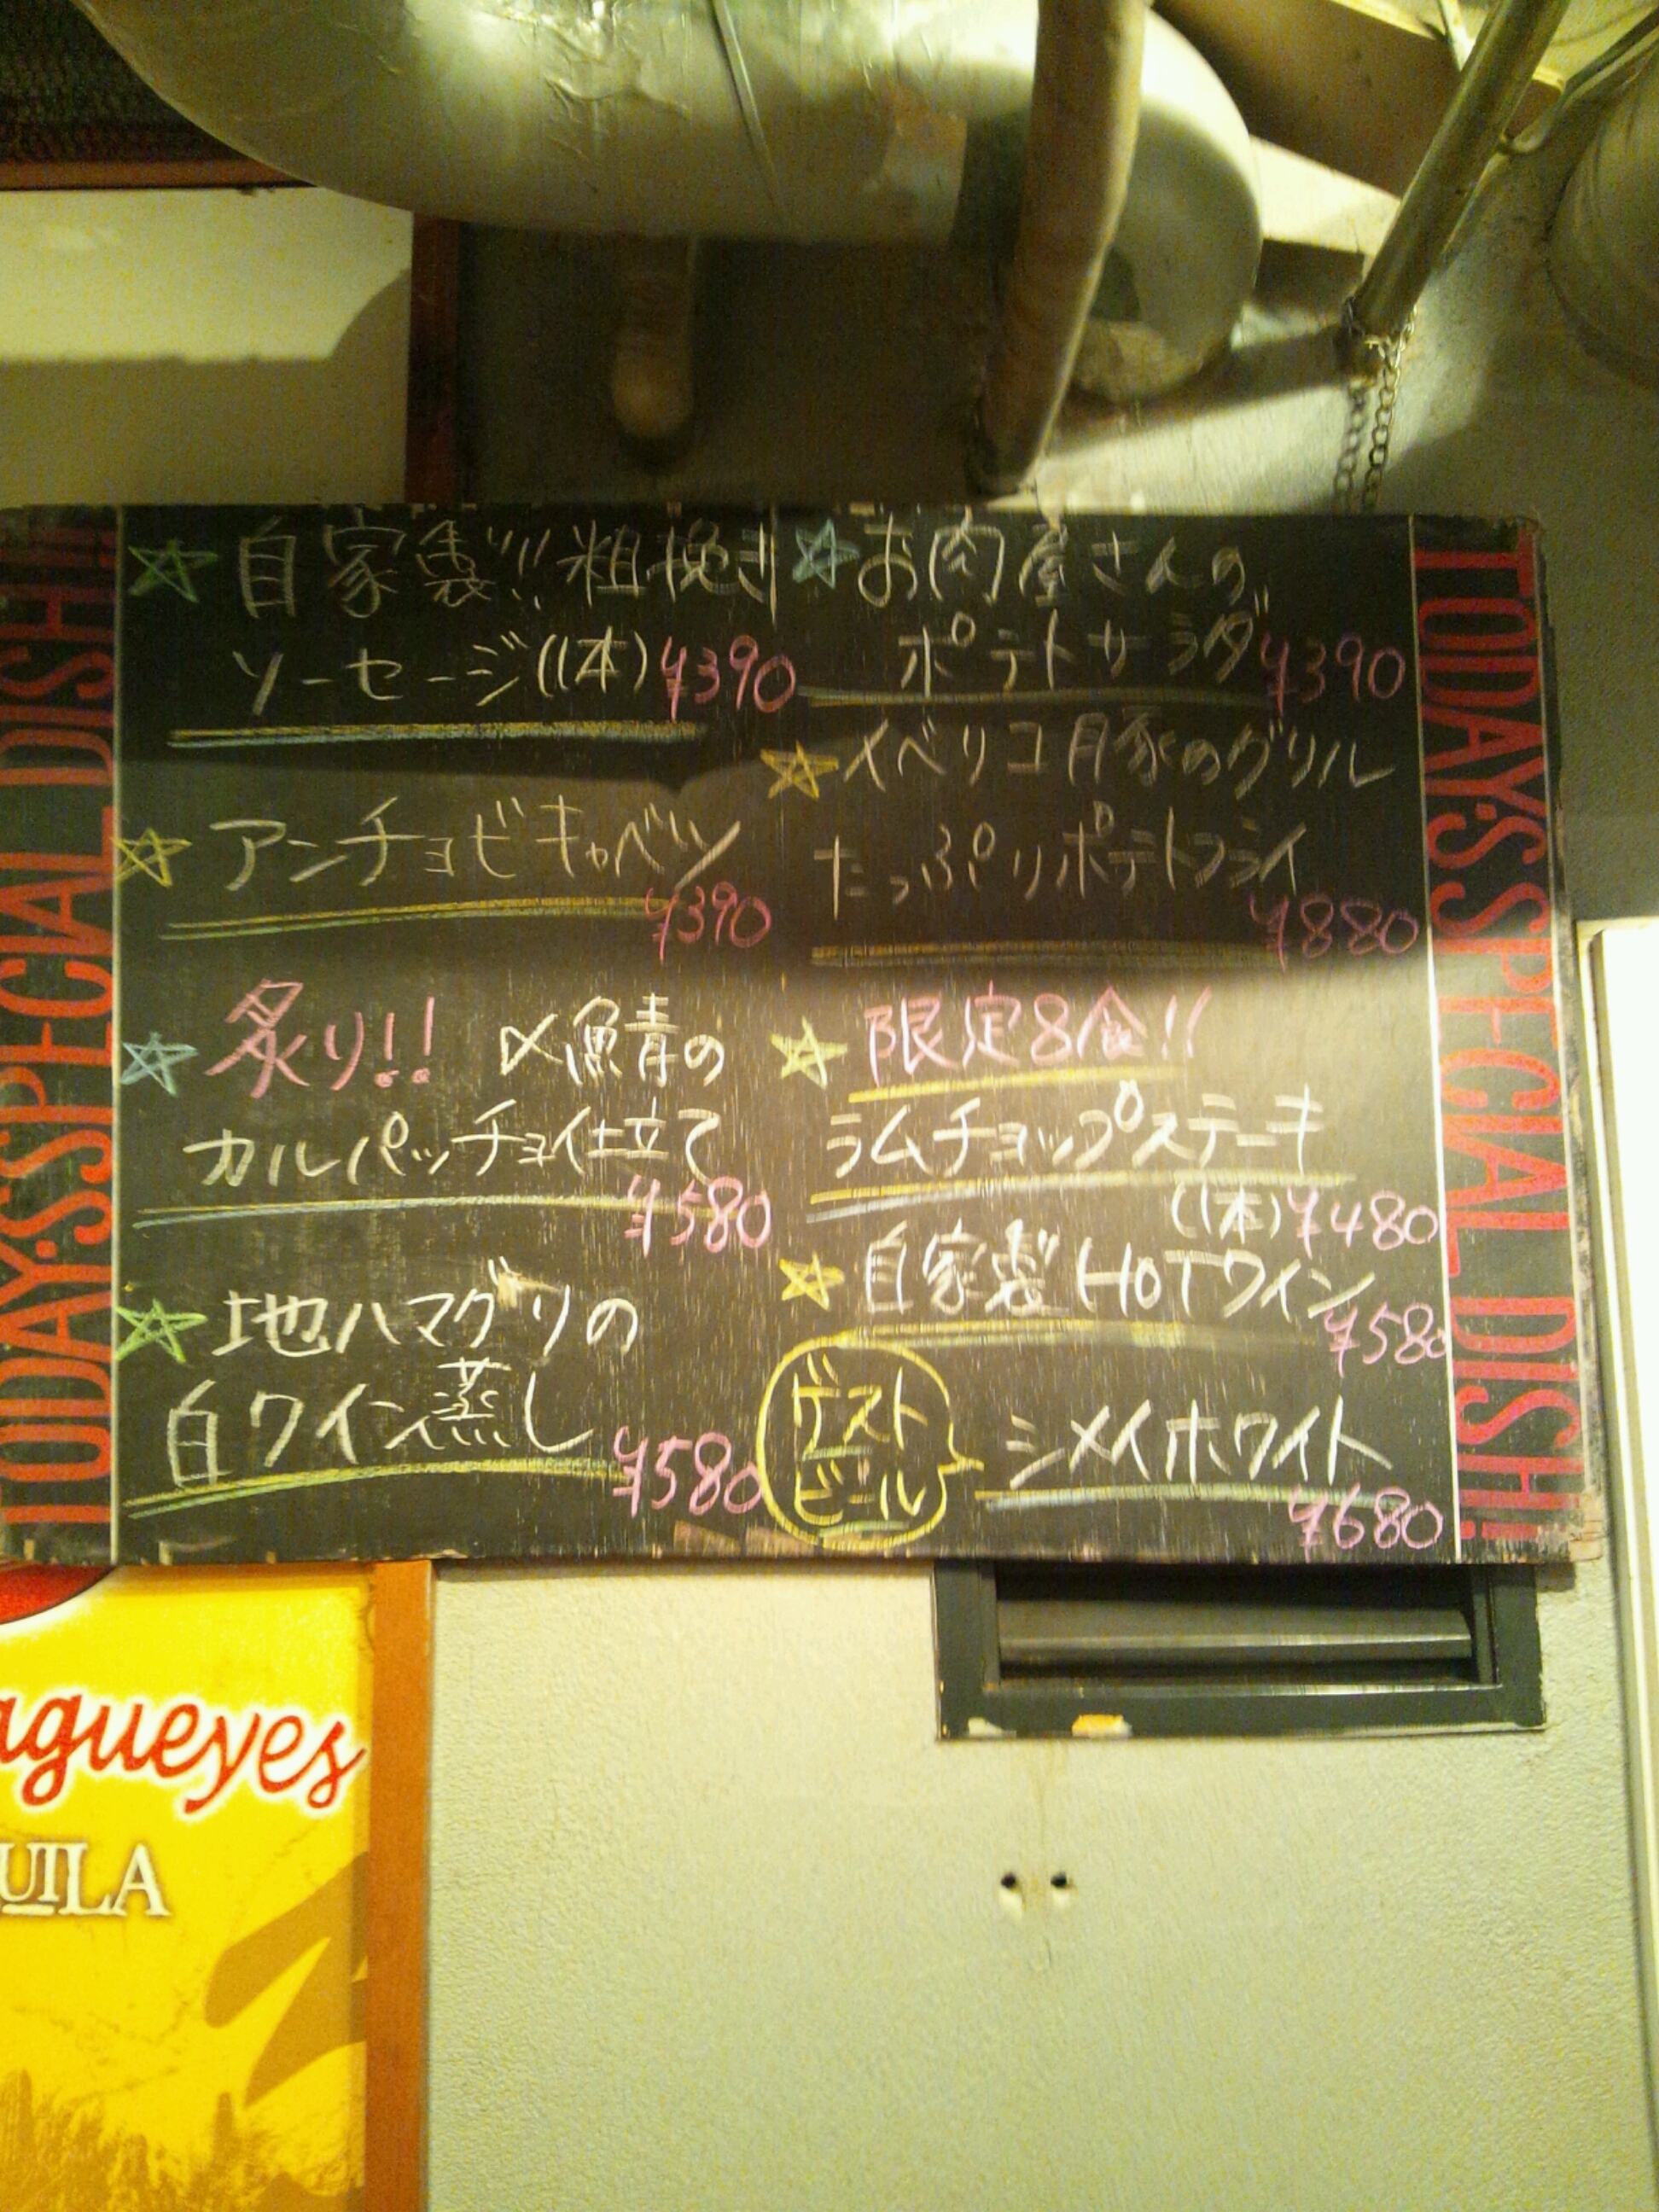 TODAY'S SPECIAL DISH!!
自家製!!粗挽き
ソーセージ(1本)¥390
アンチョビキャベツ
¥390
炙り!!〆鯖の
カルパッチョ仕立て
¥580
地ハマグリの
白ワイン蒸し
¥580
お肉屋さんの
ポテトサラダ¥390
イベリコ豚のグリル
たっぷりポテトフライ
¥880
限定8食!!
ラムチョップステーキ
(1本)¥480
自家製HOTワイン
¥580
ゲスト
ビール
シメイホワイト
¥680
TODAY'S SPECIAL DISH!!
agueyes
UILA